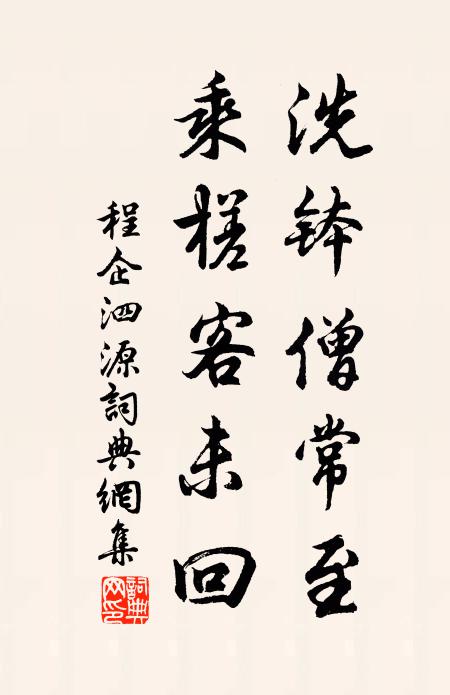 洗鉢僧常至
乘槎客未回
程企泗源詞典網集
詞典網印